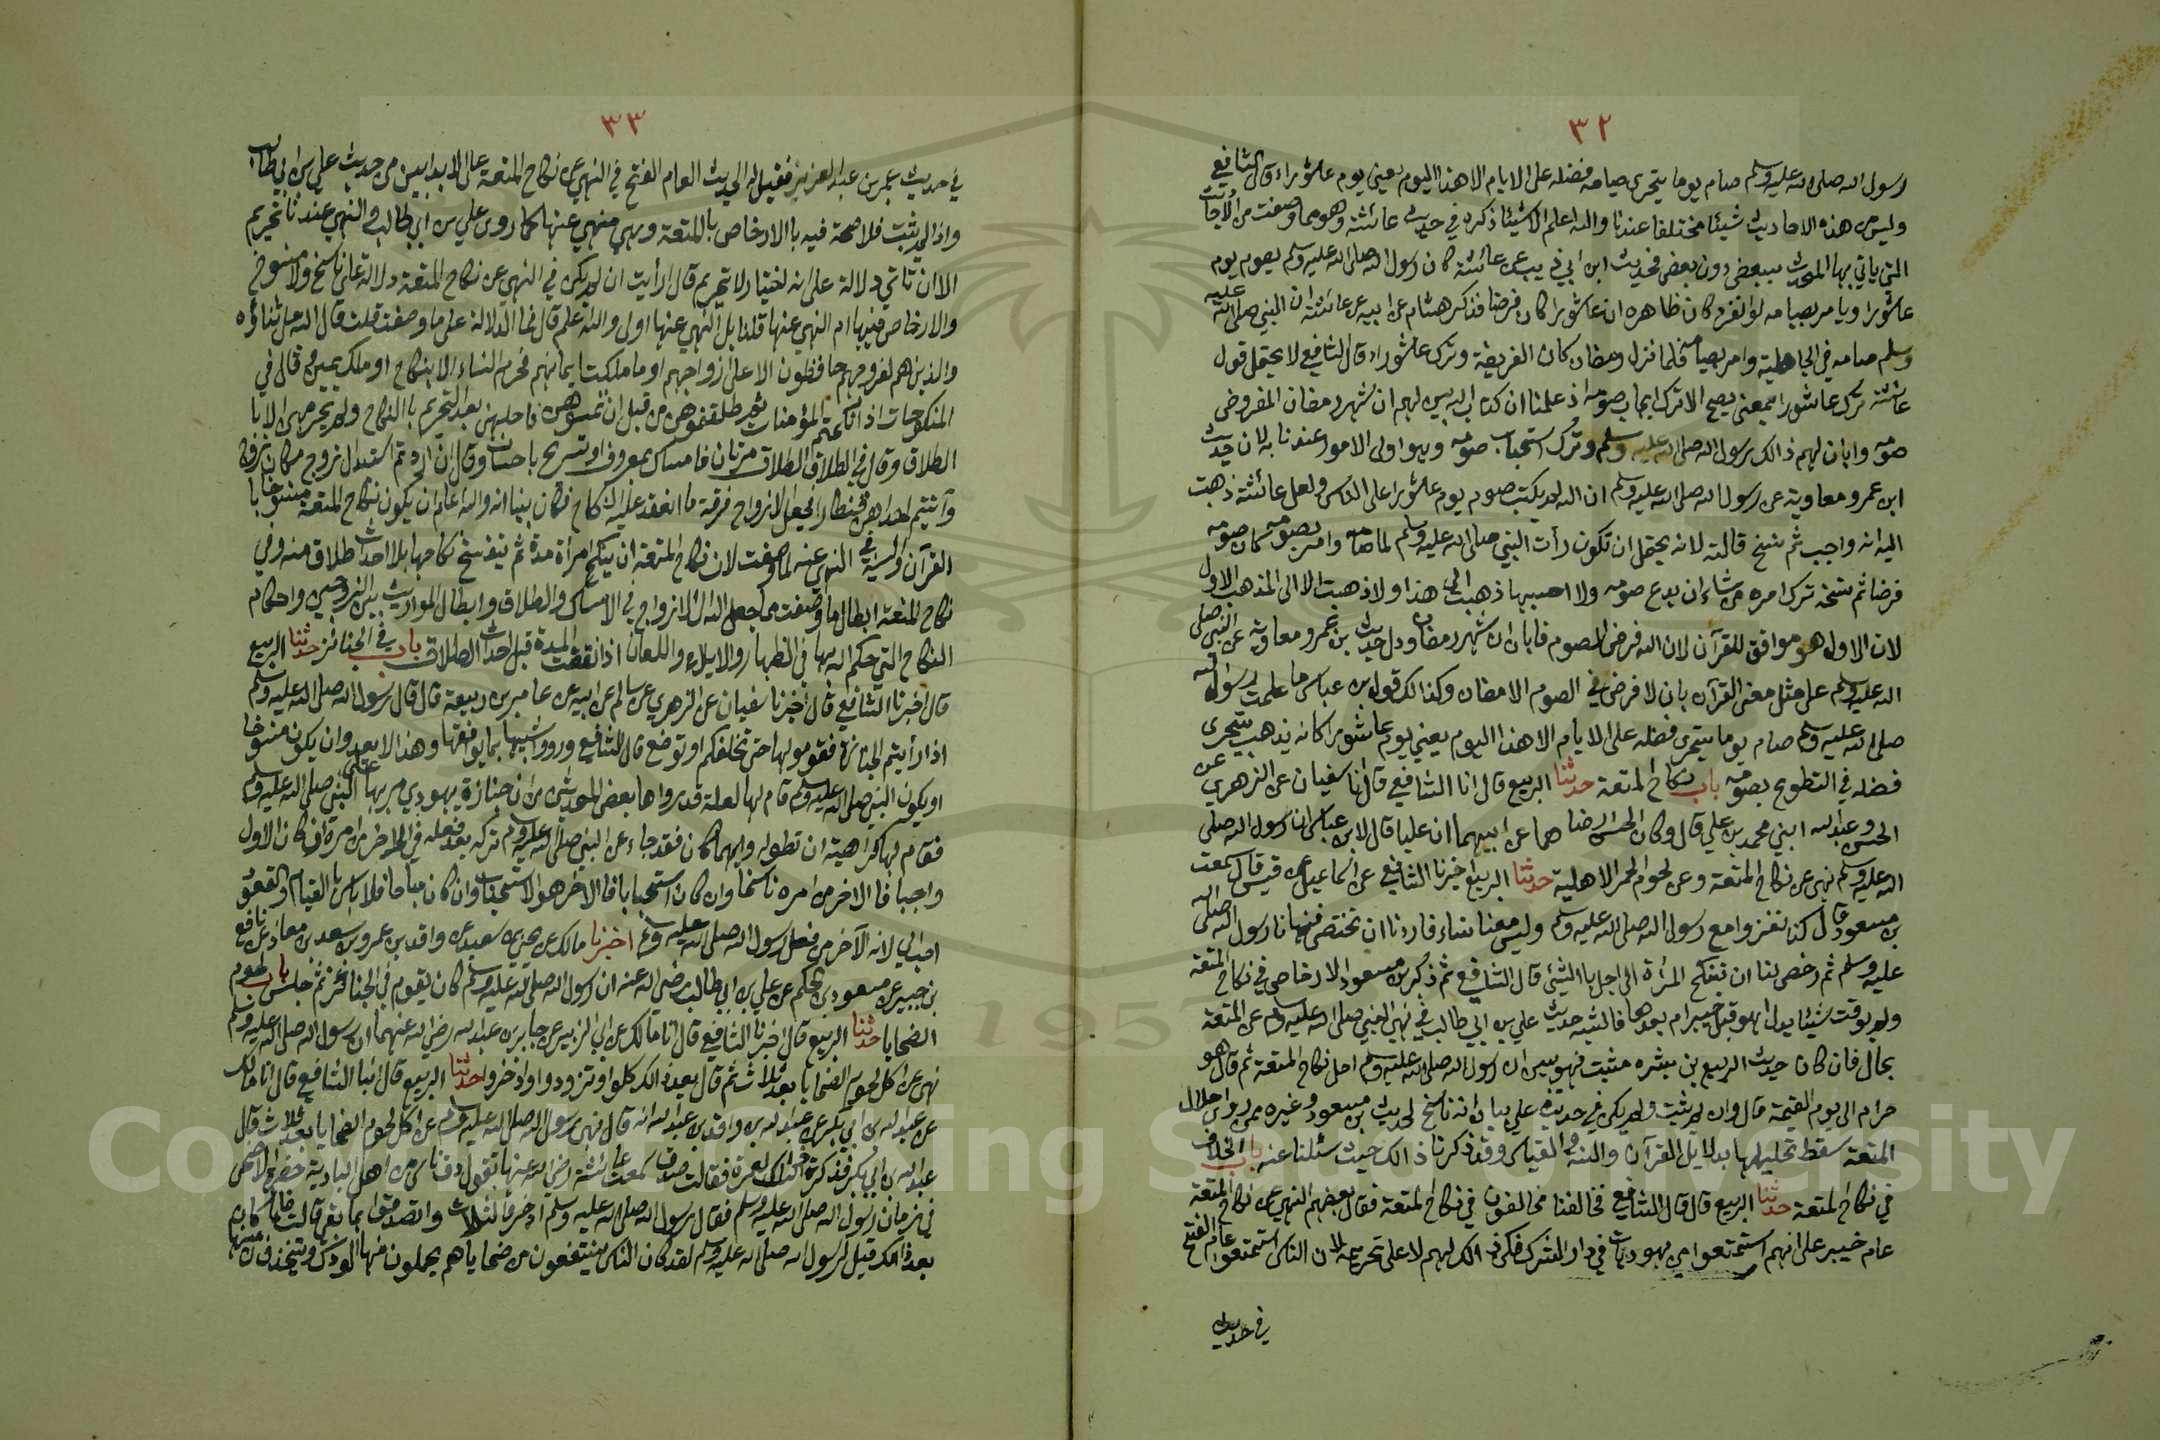 ٣٢
رسول الله صلى الله عليه وسلم صام يوما يتحرى صيامه فضله على الايام الا هذا اليوم يعني يوم عاشوراء قال الشافعي
وليس من هذه الاحاديث شيئا مختلفا عندنا والله اعلم الا شيئا ذكره في حديث عائشة وهو مما وصفت من الاحاديث
التي ياتي بها المحدث ببعض دون بعض فحديث ابن ابي ذيب عن عائشة كان رسول الله صلى الله عليه وسلم يصوم يوم
عاشورا ويامر بصيامه لو انفرد كان ظاهره ان عاشورا كان فرضا فذكر هشام عن ابيه عن عائشة ان النبي صلى الله عليه
وسلم صامه في الجاهلية وامر بصيامه فلما نزل رمضان كان الفريضة وترك عاشوراء قال الشافعي لا يحتمل قول
عائشة ترك عاشورا بمعنى يصح الا ترك ايجاب صومه اذ علمنا ان كتاب الله بين لهم ان شهر رمضان المفروض
صومه وابان لهم ذالك رسول الله صلى الله عليه وسلم وترك استحباب صومه وهو اولى الامور عندنا به لان حديث
ابن عمر ومعاوية عن رسول الله صلى الله عليه وسلم ان الله لم يكتب صوم يوم عاشورا على الناس ولعل عائشة ذهبت
اليه انه واجب ثم نسخ قالته لانه يحتمل ان تكون رأت النبي صلى الله عليه وسلم لما صامه وامر بصومه كان صومه
فرضا ثم نسخه ترك امره من شاء ان يدع صومه ولا احسبها ذهبت الى هذا ولا ذهبت الا الى المذهب الاول
لان الاول هو موافق للقرآن لان الله فرض الصوم فابان ان شهر رمضان ودل حديث بن عمر ومعاوية عن النبي صلى
الله عليه وسلم على مثل معنى القرآن بان لا فرض في الصوم الا رمضان وكذالك قول بن عباس ما علمت رسول الله
صلى الله عليه وسلم صام يوما يتحرى فضله على الايام الا هذا اليوم يعني يوم عاشورا كانه يذهب يتحرى
فضله في التطوع بصومه باب نكاح المتعة حدثنا الربيع قال انا الشافعي قال انا سفيان عن الزهري عن
الحسن وعبد الله ابني محمد بن علي قال وكان الحسن ارضاهما عن ابيهما ان عليا قال لابن عباس ان رسول الله صلى
الله عليه وسلم نهى عن نكاح المتعة وعن لحوم الحمر الاهلية حدثنا الربيع اخبرنا الشافعي عن اسماعيل عن قيس قال سمعت
بن مسعود قال كنا نغزوا مع رسول الله صلى الله عليه وسلم وليس معنا نساء فاردنا ان نختصي فنهانا رسول الله صلى الله
عليه وسلم ثم رخص لنا ان ننكح المرأة الى اجل بالشيئ قال الشافعي ثم ذكر بن مسعود الارخاص في نكاح المتعة
ولم يوقت شيئا يدل اهو قبل خيبر ام بعدها فاشبه حديث علي بن ابي طالب في نهي النبي صلى الله عليه وسلم عن المتعة
بحال فان كان حديث الربيع بن سبرة مثبت فهو يبين ان رسول الله صلى الله عليه وسلم احل نكاح المتعة ثم قال هو
حرام الى يوم القيمة قال وان لم يثبت ولم يكن في حديث علي بيان انه ناسخ لحديث بن مسعود وغيره ممن روى احلال
المتعة سقط تحليلها بدلايل القرآن والسنة والقياس وقد ذكرنا ذالك حيث سئلنا عنه باب الخلاف
في نكاح المتعة حدثنا الربيع قال قال الشافعي فخالفنا مخالفون في نكاح المتعة فقال بعضهم النهي عن نكاح المتعة
عام خيبر على انهم استمتعوا من يهوديات في دار الشرك فكره ذالك لهم لا على تحريمه لان الناس استمتعوا عام الفتح
في حديث
٣٣
في حديث عمر بن عبد العزيز فقيل له الحديث العام الفتح في النهي عن نكاح المتعة على الابد ابين من حديث علي بن ابي طالب
واذا لم يثبت فلا حجة فيه بالارخاص بالمتعة وهي منهي عنها كما روى علي بن ابي طالب والنهي عندنا تحريم
الا ان تاتي دلالة على انه اختيار لا تحريم قال ارأيت ان لم يكن في النهي عن نكاح المتعة دلالة على ناسخ ولا منسوخ
والارخاص فيها ام النهي عنها قلنا بل النهي عنها اولى والله اعلم قال فما الدلالة على ما وصفت قلت قال الله جل ثناؤه
والذين هم لفروجهم حافظون الا على ازواجهم او ما ملكت ايمانهم فحرم النساء الا بنكاح او ملك يمين وقال في
المنكوحات اذا نكحتم المؤمنات ثم طلقتموهن من قبل ان تمسوهن فاحلهن بعد التحريم بالنكاح ولم يحرمهن الا با
الطلاق وقال في الطلاق الطلاق مرتان فامساك بمعروف او تسريح باحسان وقال ان اردتم استبدال زوج مكان زوج
وآتيتم احداهن قنطارا فجعل الازواج فرقة ما انعقد عليه النكاح فكان بينا انه والله اعلم ان يكون نكاح المتعة منسوخا با
القرآن والسنة في النهي عنه لما وصفت لان نكاح المتعة ان ينكح امراة مدة ثم ينفسخ نكاحها بلا احداث طلاق منه وفي
نكاح المتعة ابطال ما وصفت مما جعل الله الى الازواج في الامساك والطلاق وابطال المواريث بين الزوجين واحكام
النكاح التي حكم الله بها في الظهار والايلاء واللعان اذا انقضت المدة قبل احداث الطلاق باب في الجنائز حدثنا الربيع
قال اخبرنا الشافعي قال اخبرنا سفيان عن الزهري عن سالم عن ابيه عن عامر بن ربيعة قال قال رسول الله صلى الله عليه وسلم
اذا رأيتم الجنازة فقوموا لها حتى تخلفكم او توضع قال الشافعي ورووا شبيها بما يوافقها وهذا لا يعدوا ان يكون منسوخا
او يكون النبي صلى الله عليه وسلم قام لها لعلة قد رواها بعض المحدثين من ان جنازة يهودي مر بها على النبي صلى الله عليه وسلم
فقام لها كراهية ان تطوله وايهما كان فقد جاء عن النبي صلى الله عليه وسلم تركه بعد فعله في الاخر من امره ان كان الاول
واجبا فالاخر من امره ناسخا وان كان استحبابا فالاخر هو الاستحباب وان كان مباحا فلا باس بالقيام والقعود
احب الي لانه الآخر من فعل رسول الله صلى الله عليه وسلم اخبرنا مالك عن يحيى بن سعيد عن واقد بن عمرو بن سعد بن معاذ عن نافع
بن جبير عن مسعود بن الحكم عن علي بن ابي طالب رضي الله عنه ان رسول الله صلى الله عليه وسلم كان يقوم في الجنائز ثم جلس باب لحوم
الضحايا حدثنا الربيع قال اخبرنا الشافعي قال انا مالك عن ابي الزبير عن جابر بن عبد الله رضي الله عنهما ان رسول الله صلى الله عليه وسلم
نهى عن اكل لحوم الضحايا بعد ثلاث ثم قال بعد ذالك كلوا وتزودوا وادخروا حدثنا الربيع قال انبا الشافعي قال انا مالك
عن عبد الله بن ابي بكر عن عبد الله بن واقد بن عبد الله انه قال نهى رسول الله صلى الله عليه وسلم عن اكل لحوم الضحايا بعد ثلاث قال
عبد الله بن ابي بكر فذكرت ذالك لعمرة فقالت صدق سمعت عائشة رضي الله عنها تقول دف ناس من اهل البادية حضرة الاضحى
في زمان رسول الله صلى الله عليه وسلم فقال رسول الله صلى الله عليه وسلم ادخروا لثلاث وتصدقوا بما بقي قالت فلما كان
بعد ذالك قيل لرسول الله صلى الله عليه وسلم لقد كان الناس ينتفعون من ضحاياهم يجملون منها الودك ويتخذون منها